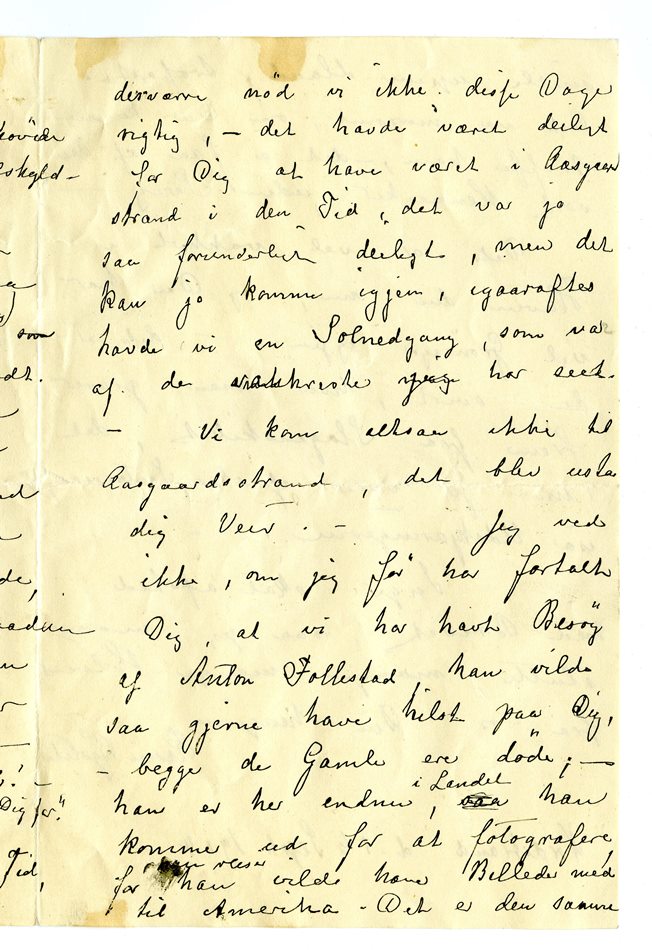 desværre nöd vi ikke disse Dage
rigtig, – det havde været deiligt
for Dig at have været i Aasgaard
strand i den Tid, det var jo
saa forunderligt deiligt, men det
kan jo komme igjen, igaaraftes
havde vi en Solnedgang, som var
af de vakkreste jeg har seet.
– Vi kom altsaa ikke til
Aasgaardsstrand, det blev usta
dig Veir. – Jeg ved
ikke, om jeg för har fortalt
Dig, at vi har havt Besög
af Anton Follestad, han vilde
saa gjerne have hilst paa Dig,
– begge de Gamle ere döde; –
han er her endnu i Landet, han
komme ud for at fotografere,
för han reiser han vilde have Billeder med
til Amerika – Det er den samme